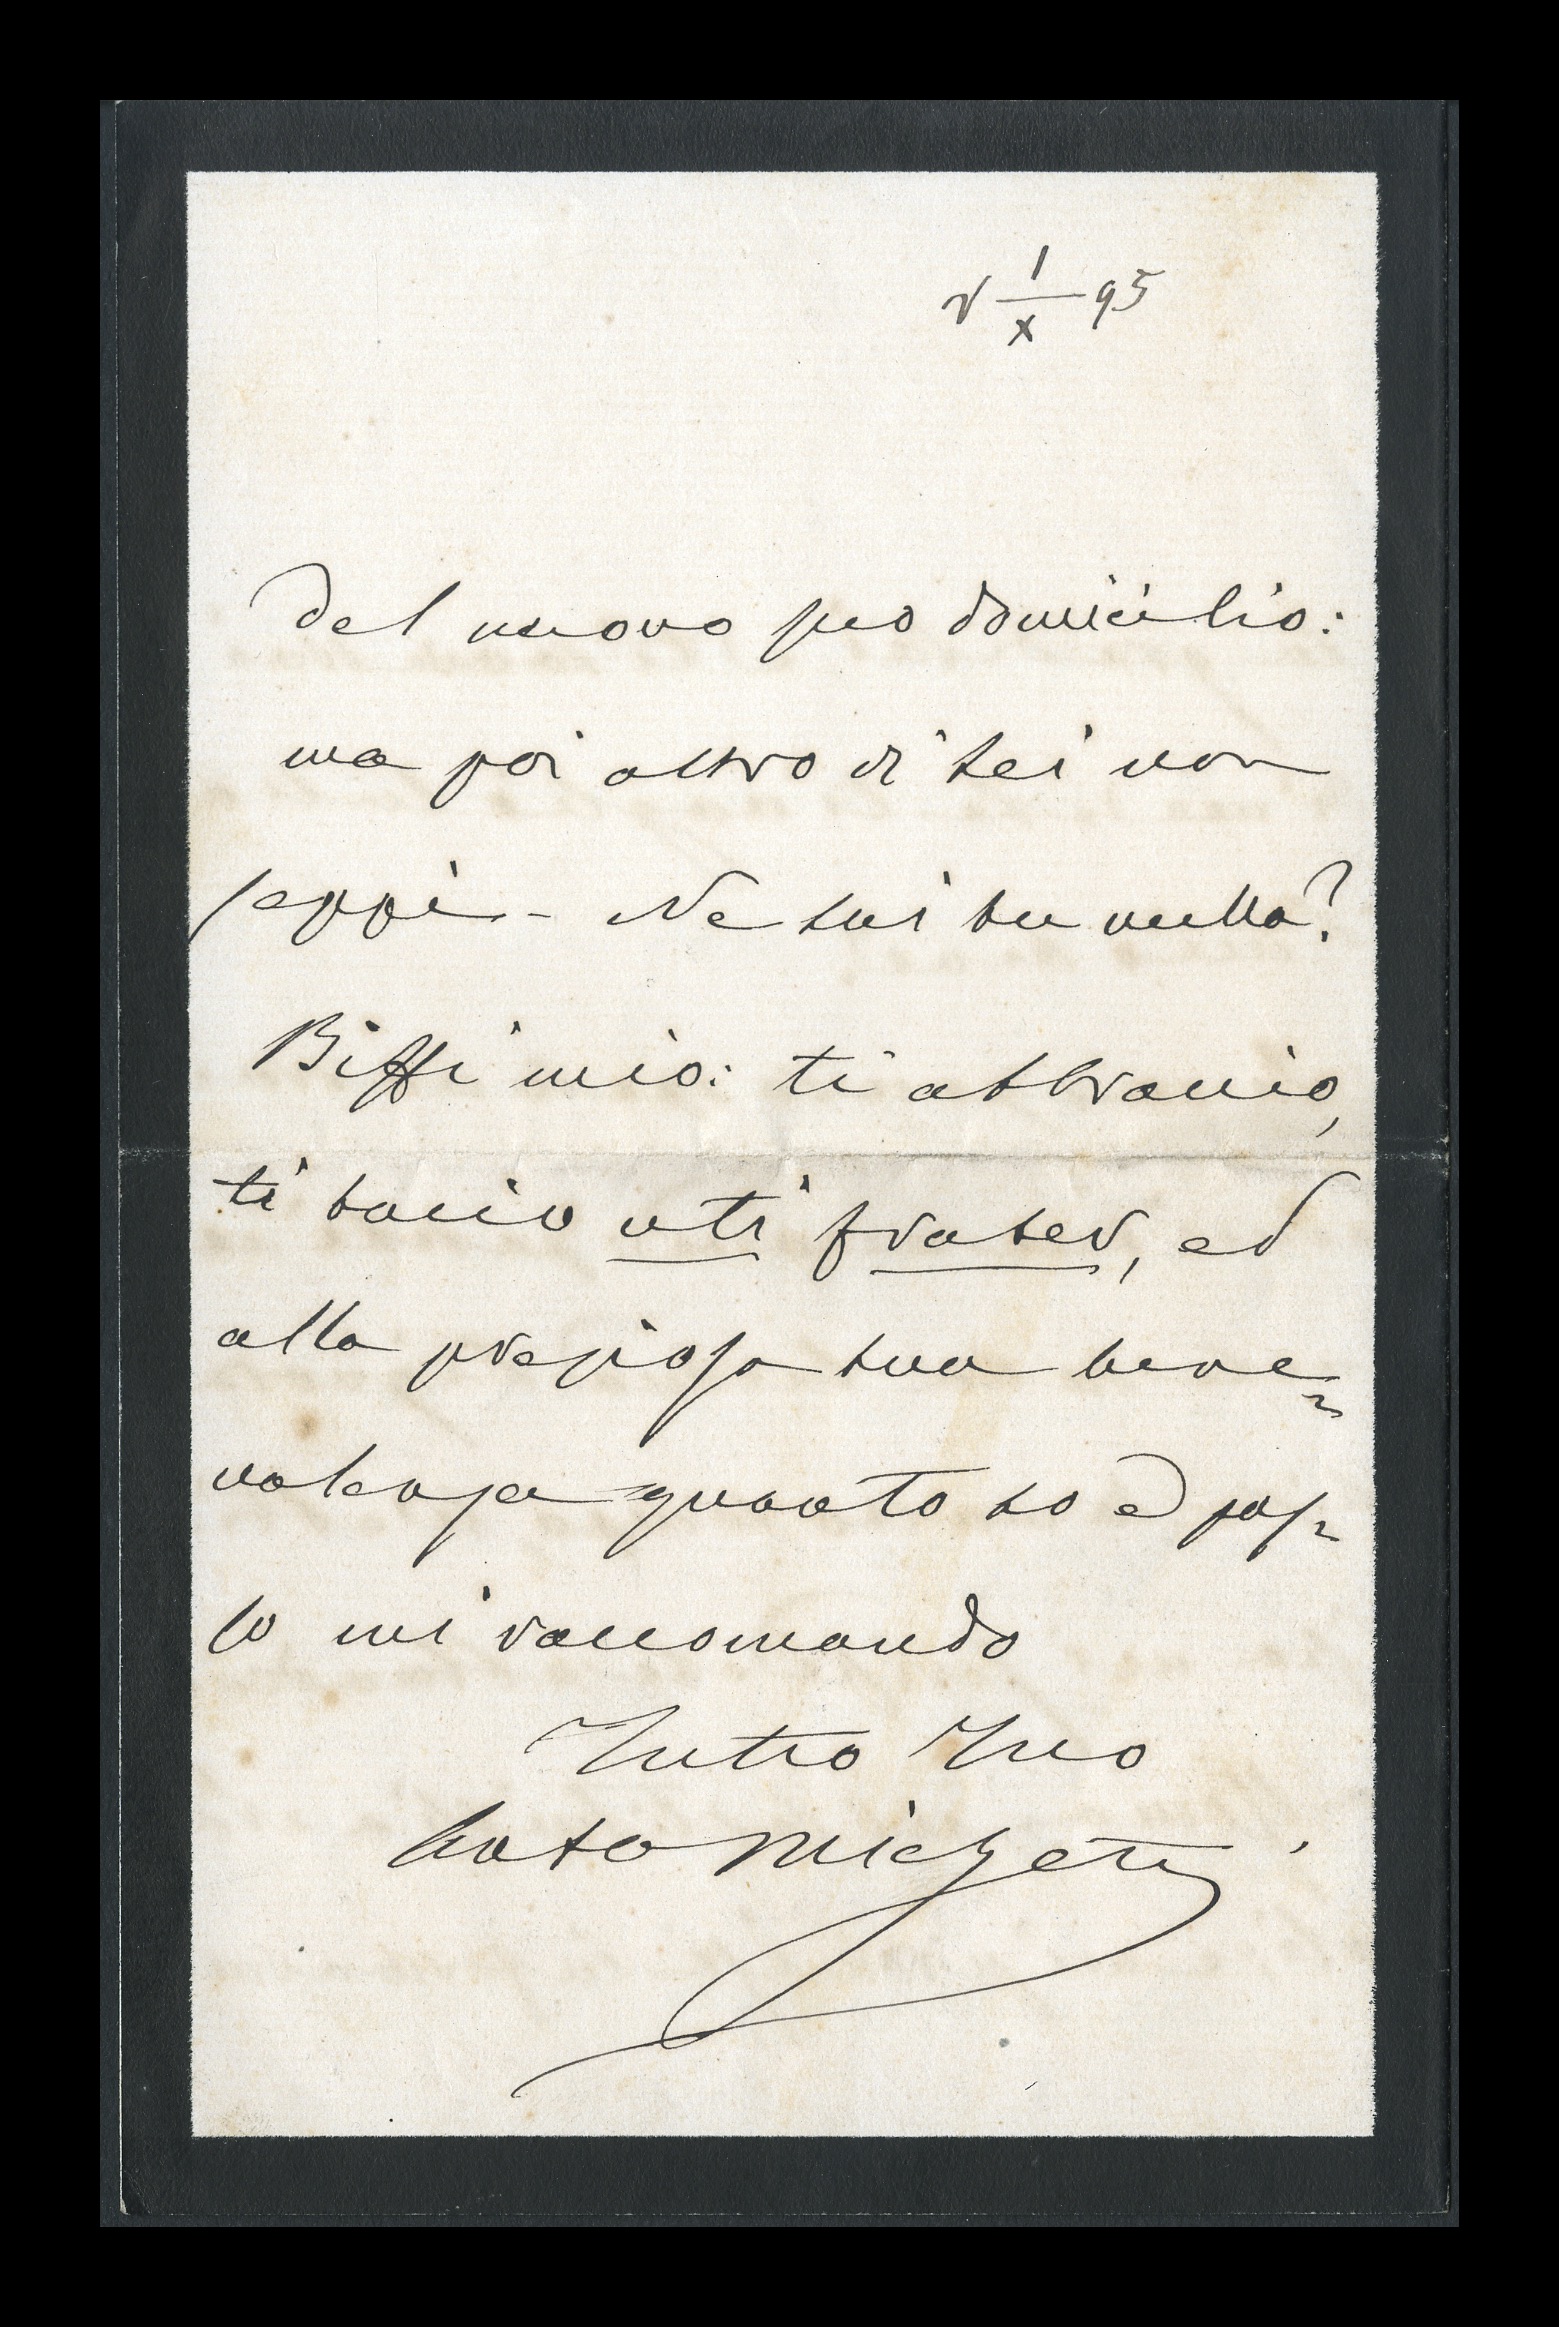 r 1/X 95
del nuovo suo domicilio:
ma poi altro di lei non
seppi - Ne sai tu nulla?
Biffi mio: ti abbraccio,
ti bacio uti frater, ed
alla preziosa tua bene=
volenza quanto so e posso=
so mi raccomando
Tutto Tuo